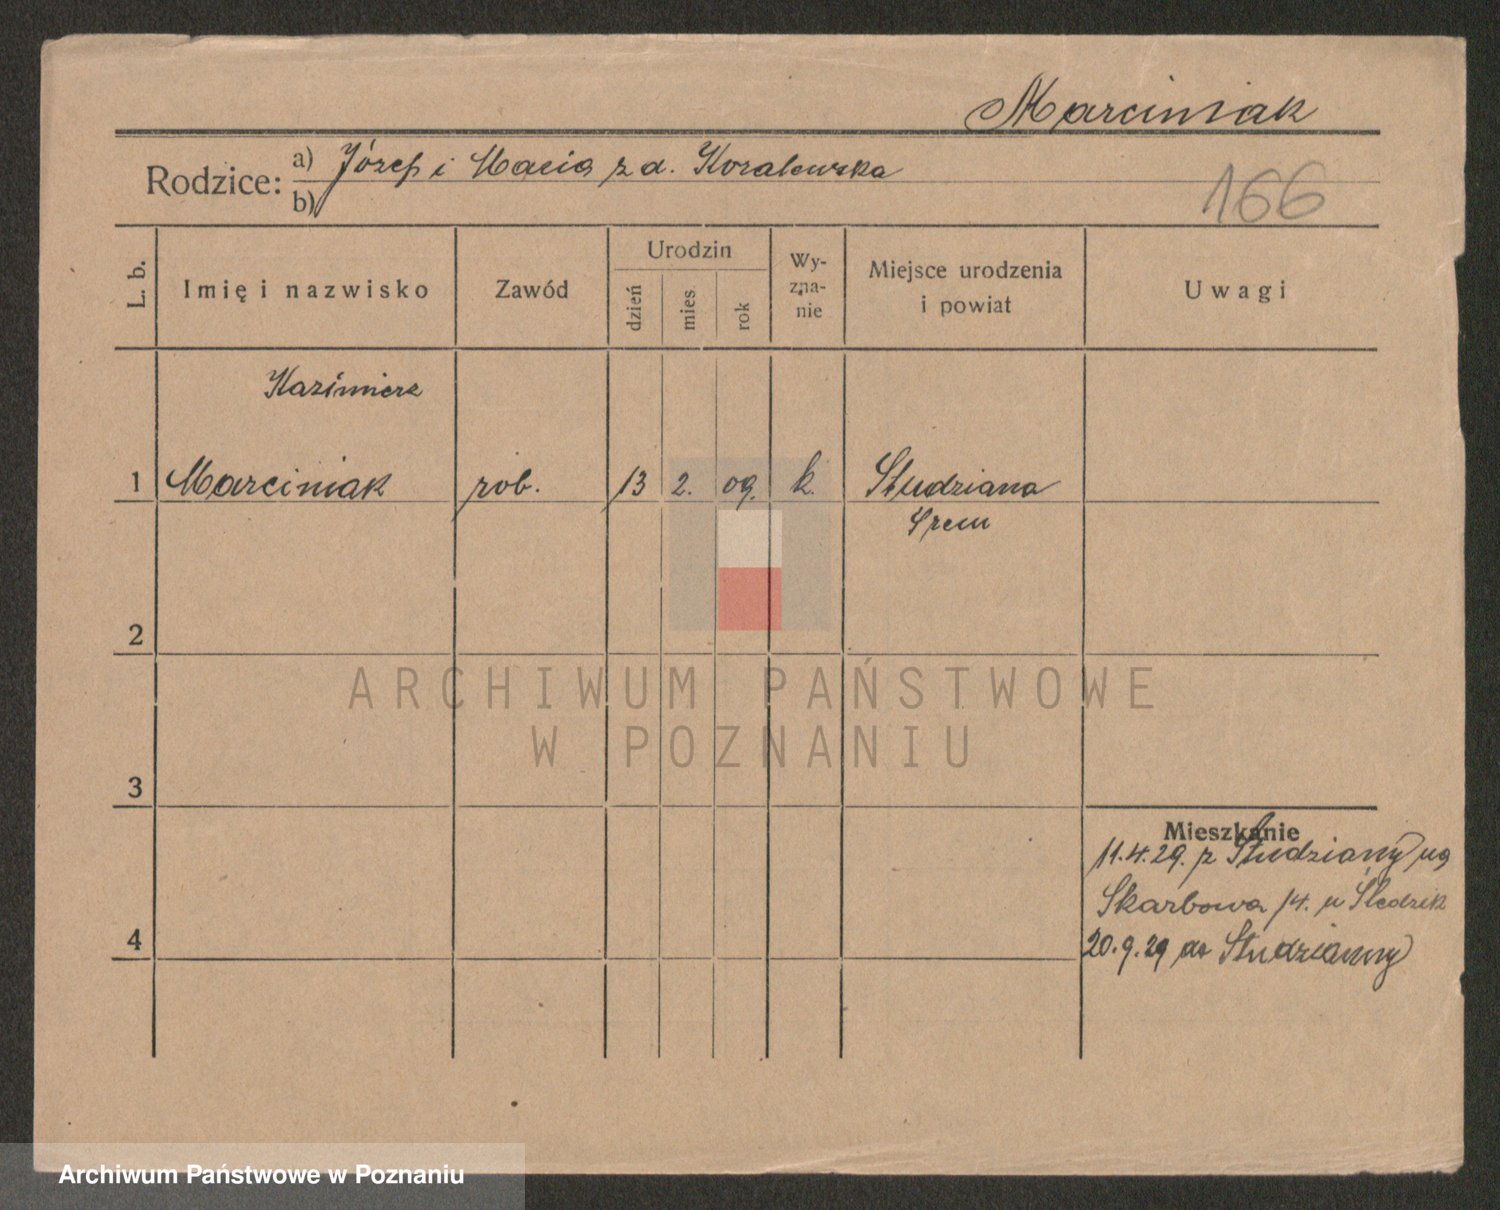 Marciniak
Rodzice: a) Józef i Maria z d. Koralewska
b)
166
L. b.
Imię i nazwisko
Zawód
Urodzin
dzień
mies
rok
Wy-
zna-
nie
Miejsce urodzenia
i powiat
Uwagi
Kazimierz
1 Marciniak rob. 13 2. 09. k. Studziana
Śrem
2
ARCHIWUM PAŃSTWOWE
W POZNANIU
3
Mieszkanie
11.4.29. z Studzianny na
Skarbowa 14. u Śledzik
4
20.9.29 do Studzianny
Archiwum Państwowe w Poznaniu